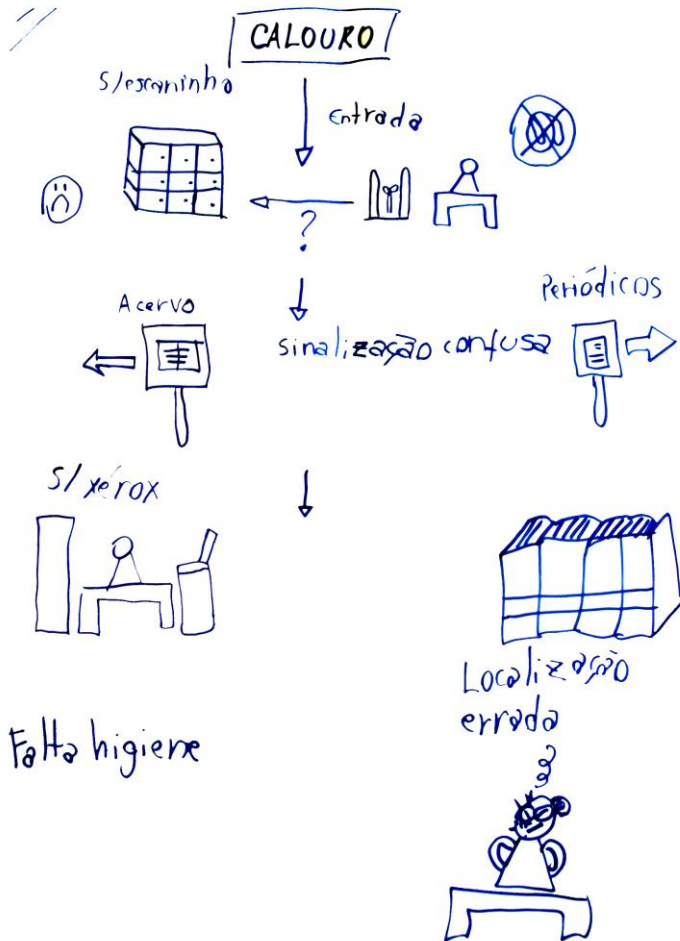 CALOURO
S/escaninho
Entrada
?
Acervo
Sinalização confusa
Periódicos
S/ xérox
Localização
errada
Falta higiene